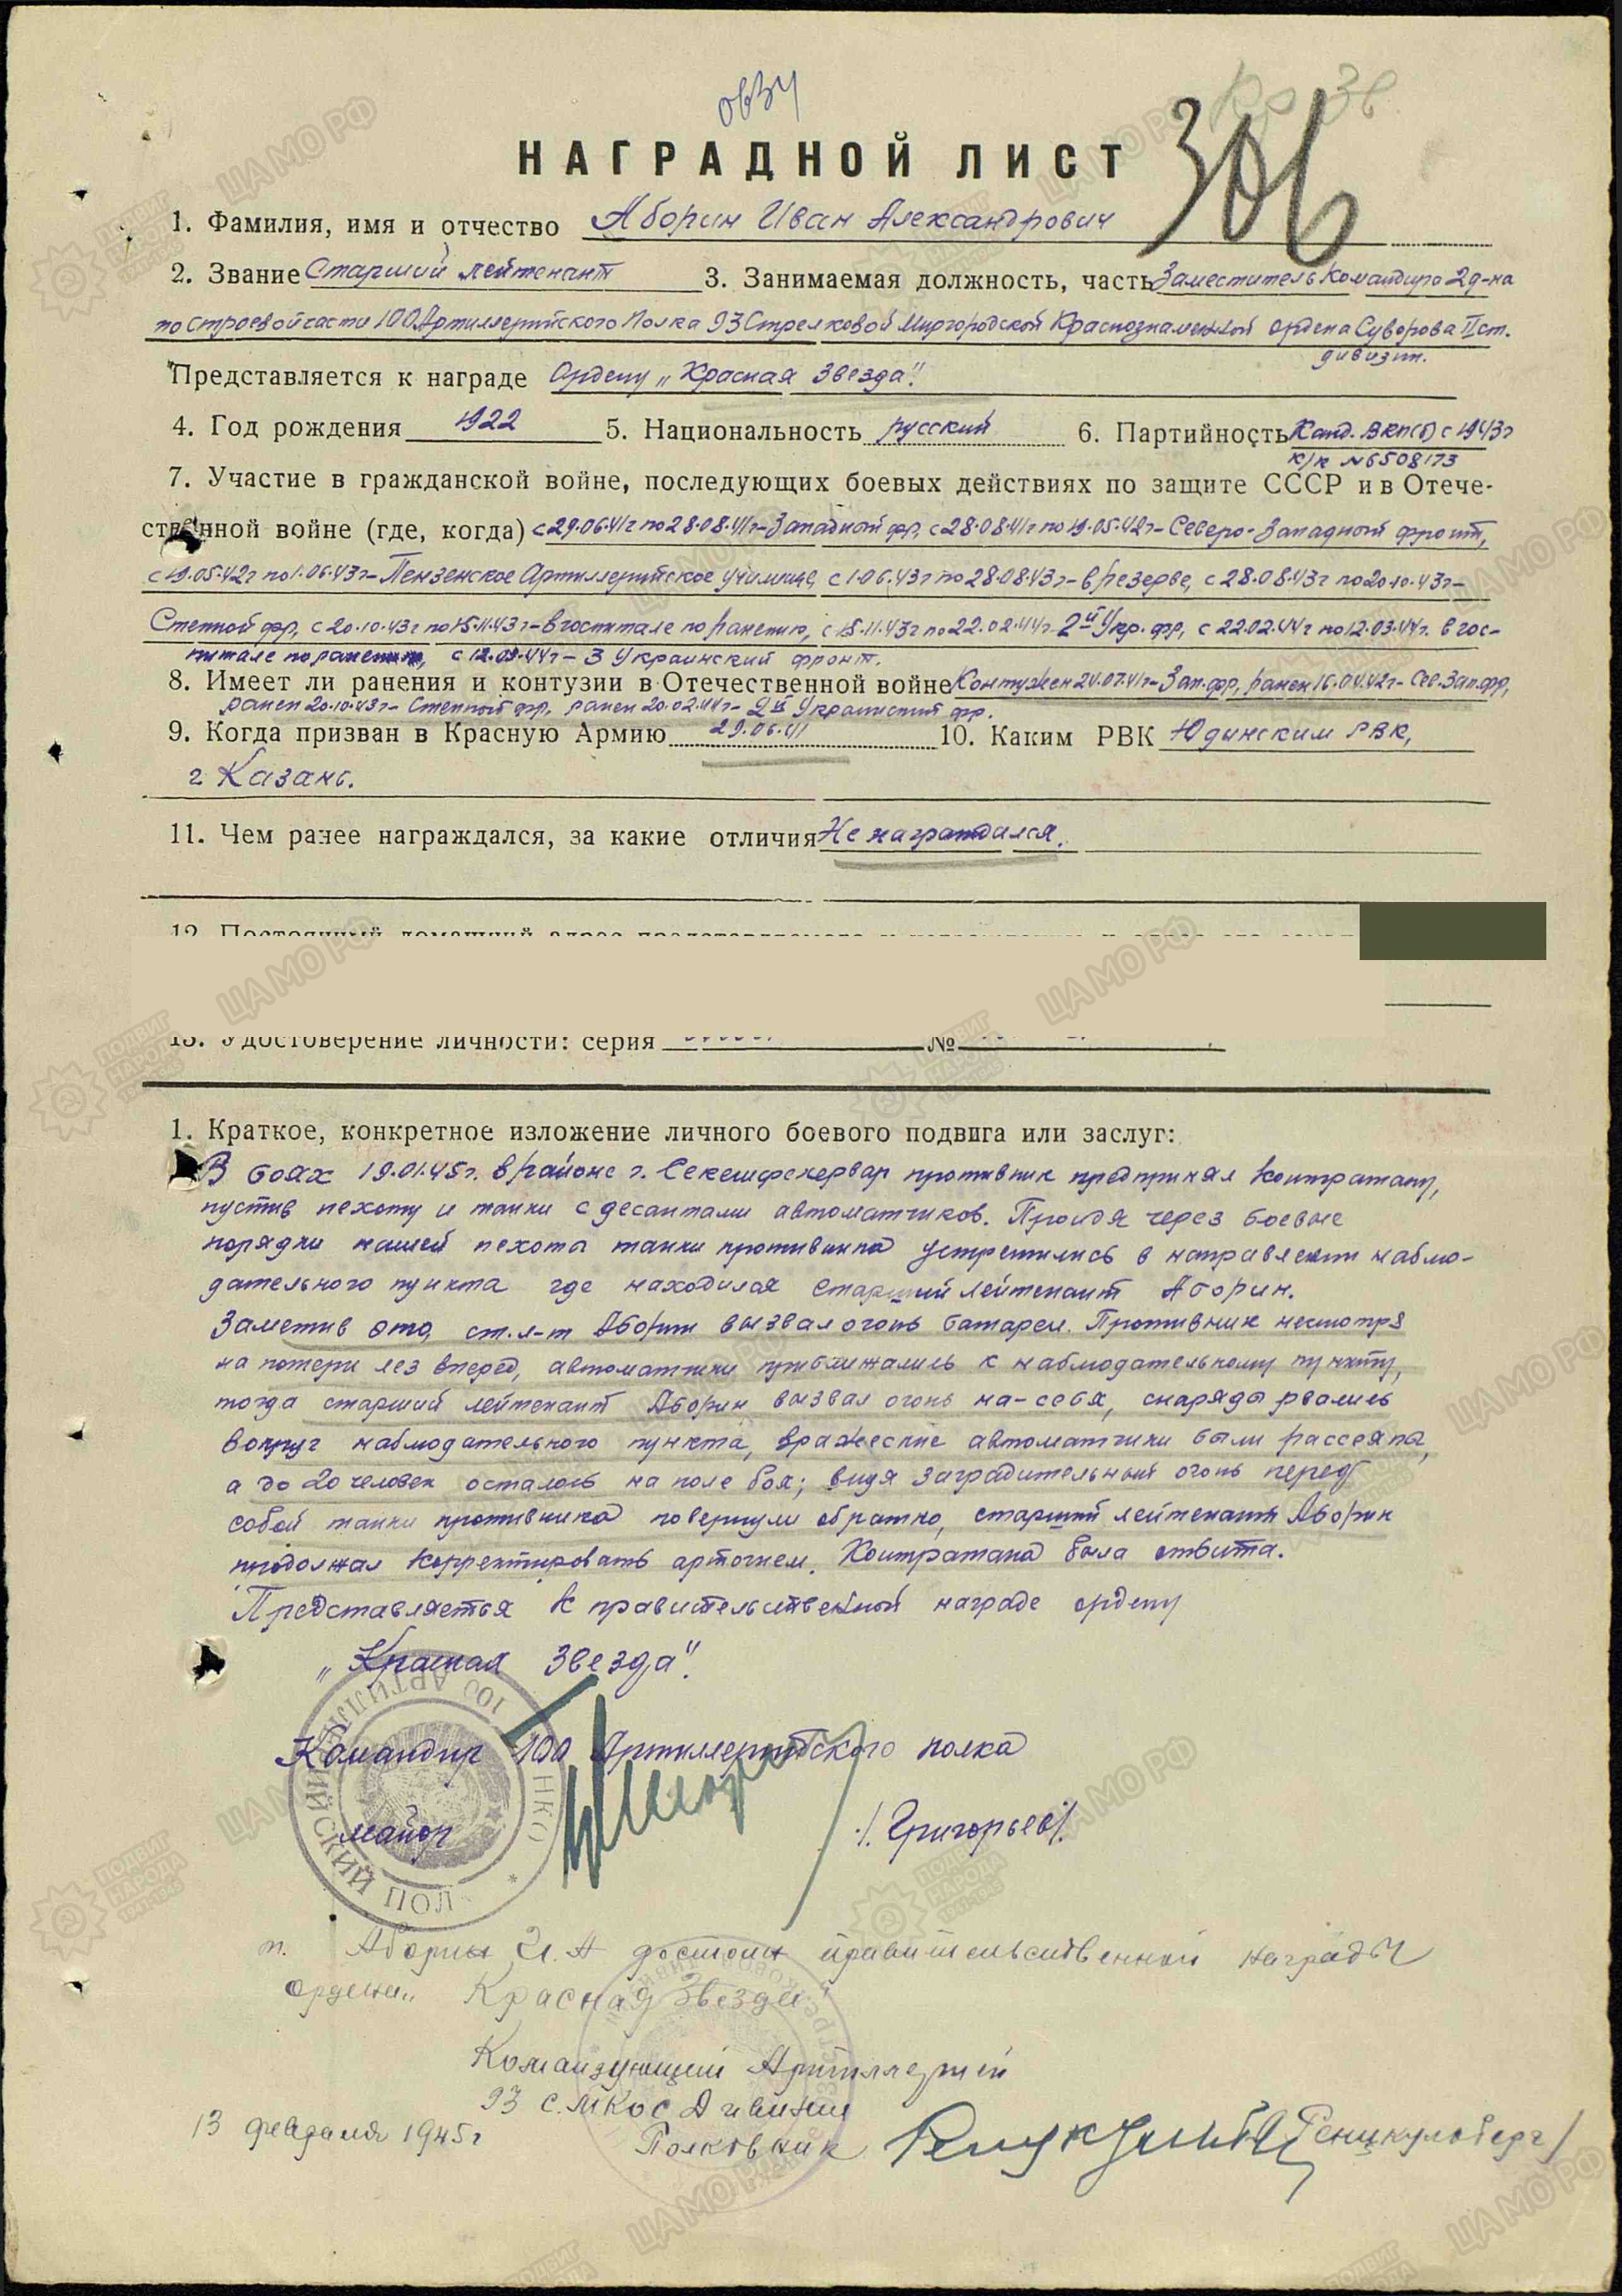 НАГРАДНОЙ ЛИСТ
306
1. Фамилия, имя и отчество Аборин Иван Александрович
2. Звание Старший лейтенант 3. Занимаемая должность, часть Заместитель Командира 2 д-на
по строевой части 100 Артиллерийского Полка 93 Стрелковой Миргородской Краснознаменной ордена Суворова II ст.
дивизии.
Представляется к награде Ордену „Красная Звезда".
4. Год рождения 1922 5. Национальность русский 6. Партийность Канд. ВКП(б) с 1943г
к/к №6508173
7. Участие в гражданской войне, последующих боевых действиях по защите СССР и в Отече-
ственной войне (где, когда) с 29.06.41г по 28.08.41г – Западный фр, с 28.08.41г по 19.05.42г – Северо-Западный фронт,
с 19.05.42г по 1.06.43г – Пензенское Артиллерийское училище, с 1.06.43г по 28.08.43г – в резерве, с 28.08.43г по 20.10.43г –
Степной фр, с 20.10.43г по 15.11.43г – в госпитале по ранению, с 15.11.43г по 22.02.44г 2й Укр. фр, с 22.02.44г по 12.03.44г. в гос-
питале по ранению, с 12.03.44г – 3 Украинский фронт.
8. Имеет ли ранения и контузии в Отечественной войне Контужен 24.07.41г – Зап. фр, ранен 16.04.42г – Сев. Зап. фр,
ранен 20.10.43г – Степной фр, ранен 20.02.44г – 2й Украинский фр.
9. Когда призван в Красную Армию 29.06.41 10. Каким РВК Юдинским РВК,
г Казань.
11. Чем ранее награждался, за какие отличия Не награждался.
13. Удостоверение личности: серия №
1. Краткое, конкретное изложение личного боевого подвига или заслуг:
В боях 19.01.45г. в районе г. Секешфехервар противник предпринял контратаку,
пустив пехоту и танки с десантами автоматчиков. Пройдя через боевые
порядки нашей пехоты танки противника устремились в направлении наблю-
дательного пункта где находился старший лейтенант Аборин.
Заметив это, ст. л-т Аборин вызвал огонь батареи. Противник несмотря
на потери лез вперед, автоматчики приближались к наблюдательному пункту,
тогда старший лейтенант Аборин вызвал огонь на-себя, снаряды рвались
вокруг наблюдательного пункта, вражеские автоматчики были рассеяны,
а до 20 человек осталось на поле боя; видя заградительный огонь перед
собой танки противника повернули обратно, старший лейтенант Аборин
продолжал корректировать артогнем. Контратака была отбита.
Представляется к правительственной награде ордену
„Красная Звезда".
Командир 100 Артиллерийского полка
майор /Григорьев/
т. Аборин И. А достоин правительственной награды
ордена „Красная Звезда"
Командующий Артиллерией
93 с. МКОС Дивизии
13 февраля 1945г Полковник